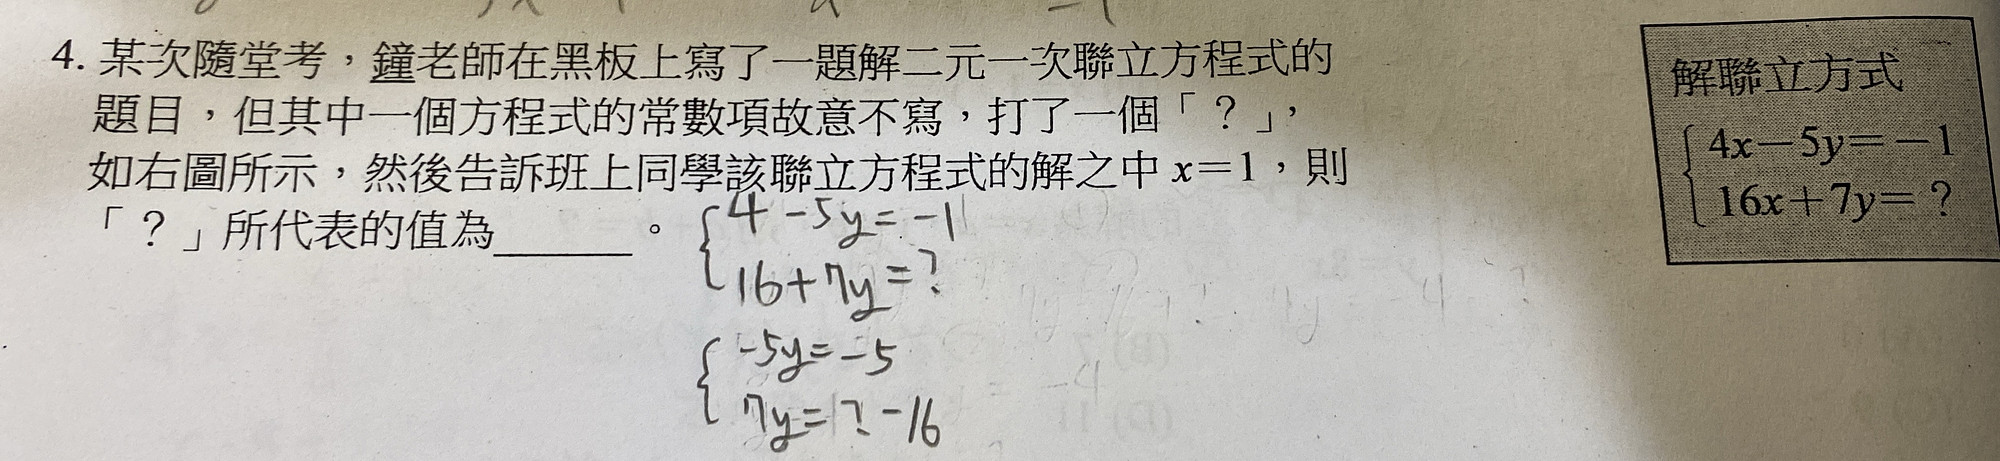 4. 某次隨堂考，鐘老師在黑板上寫了一題解二元一次聯立方程式的
題目，但其中一個方程式的常數項故意不寫，打了一個「？」，
如右圖所示，然後告訴班上同學該聯立方程式的解之中 x＝1，則
「？」所代表的值為______。
解聯立方式
4x－5y＝－1
16x＋7y＝？
4-5y=-1
16+7y=?
-5y=-5
7y=?-16